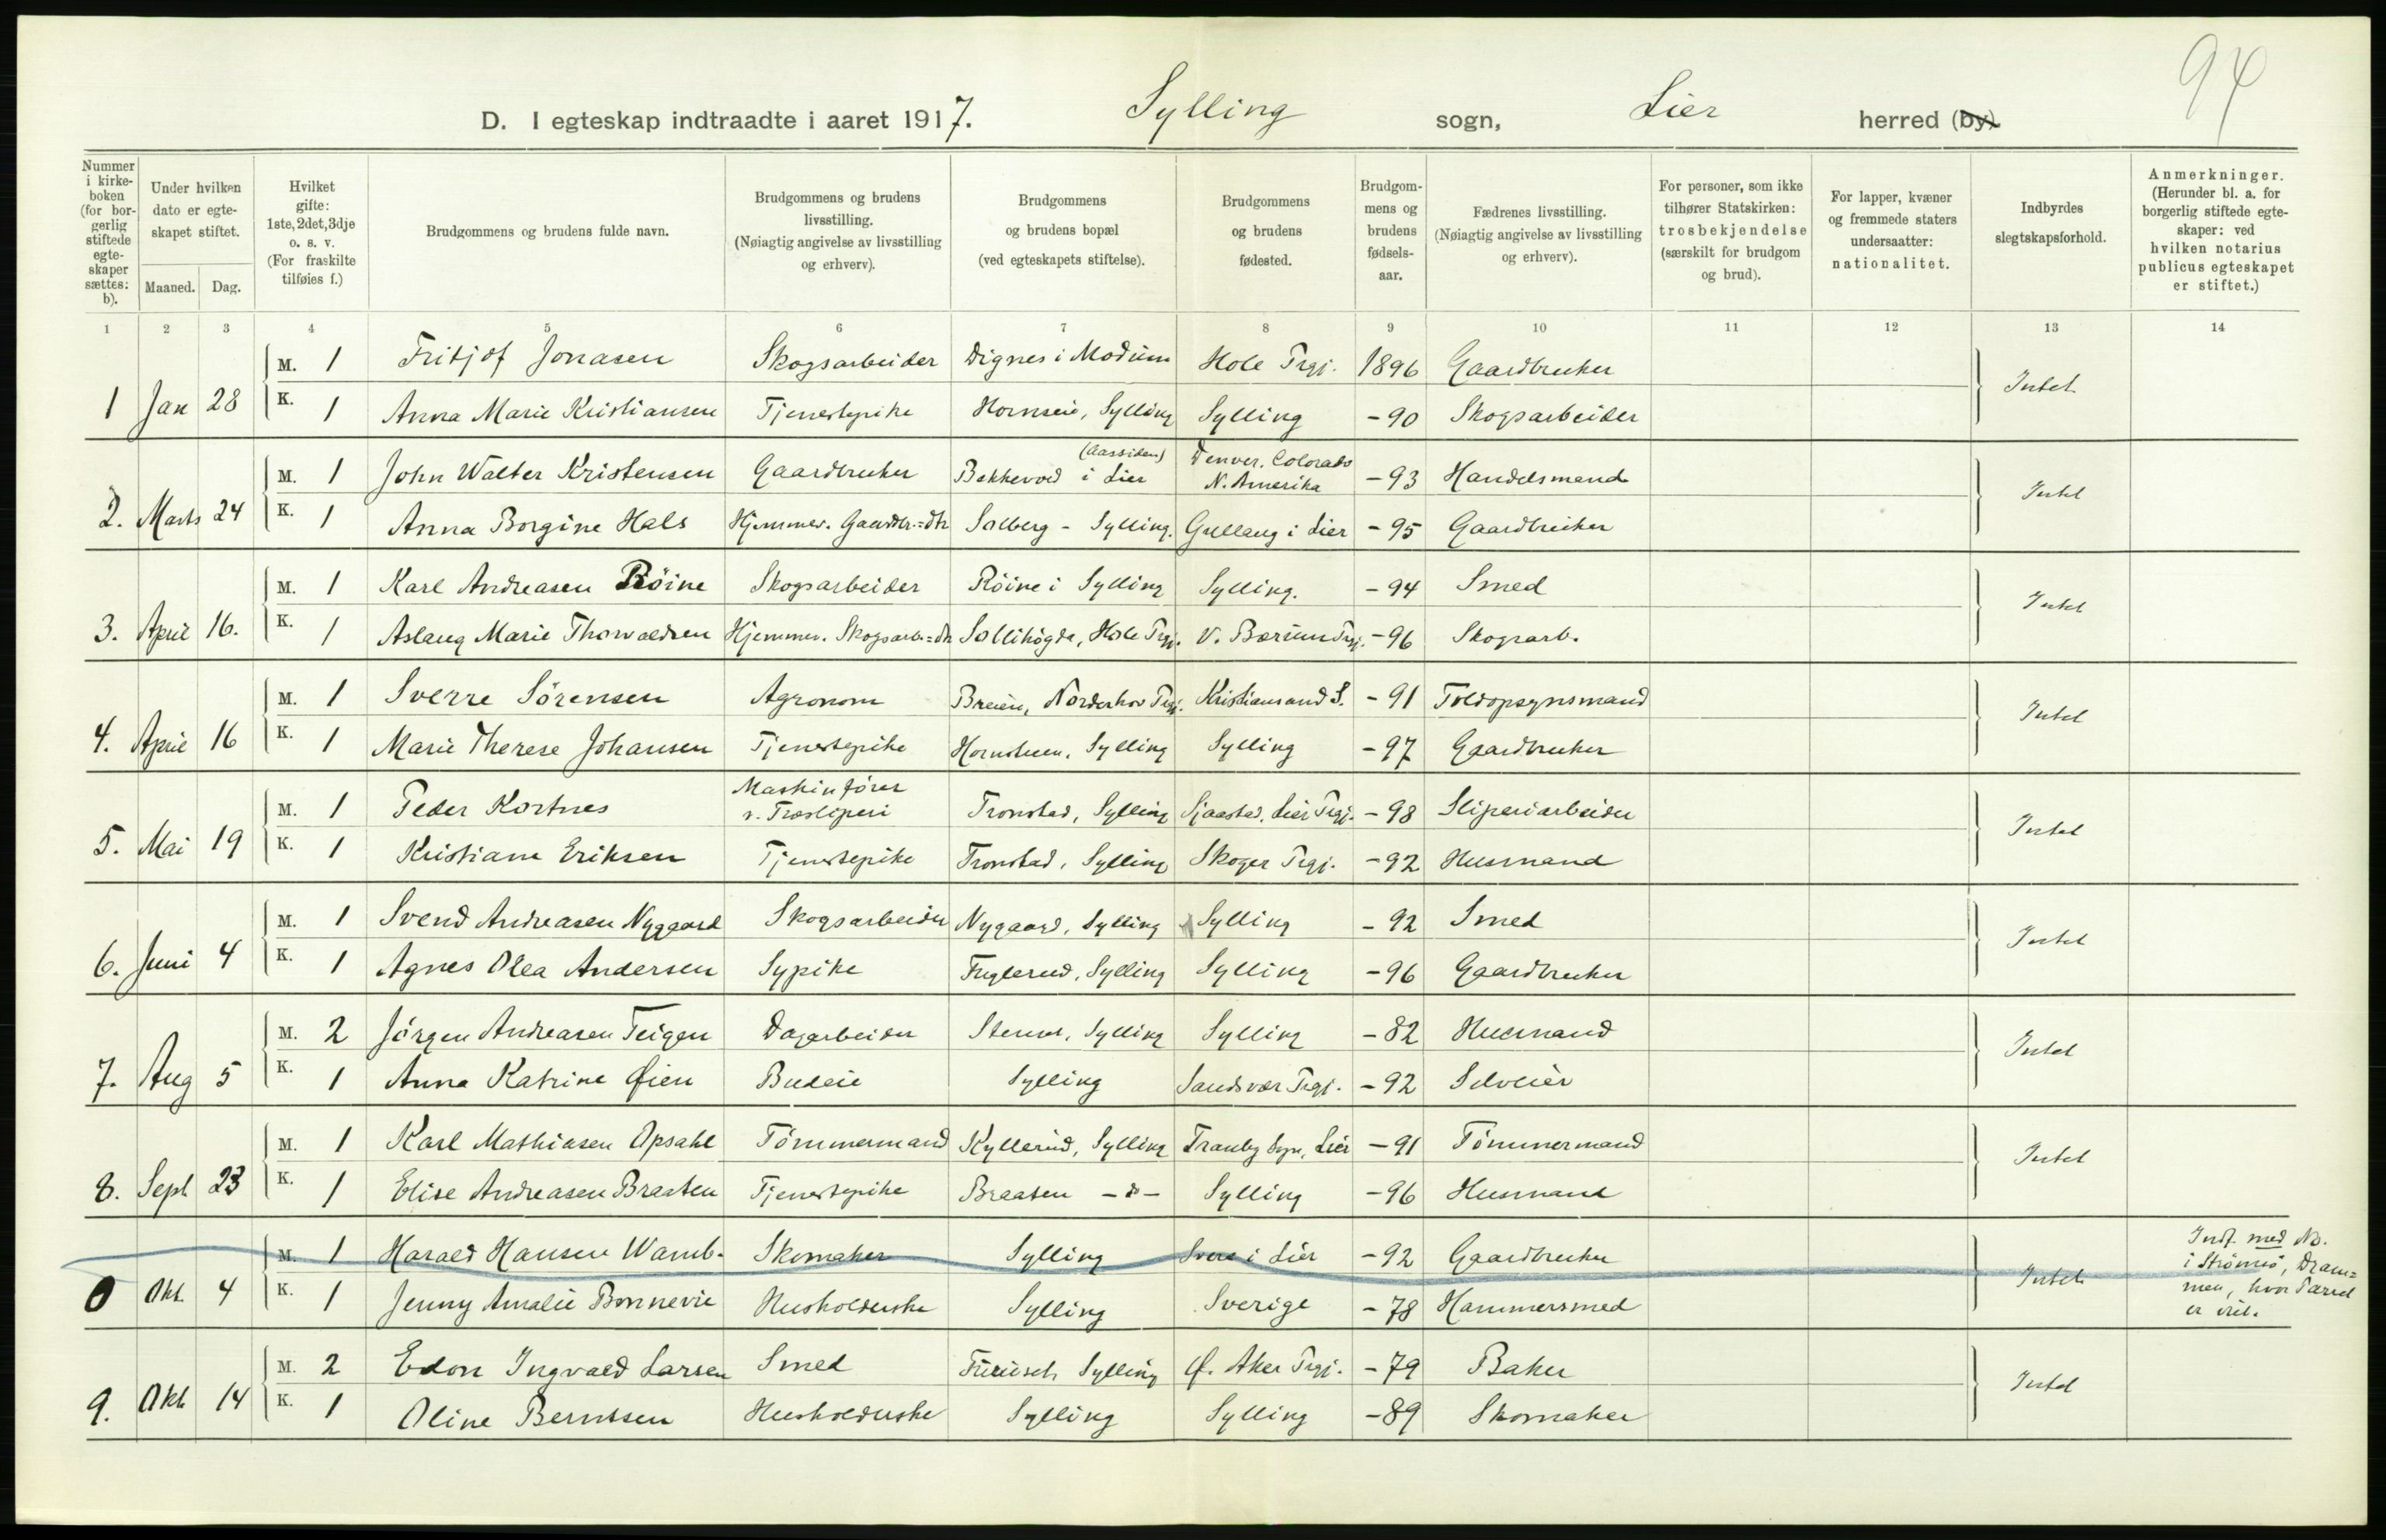 94
D. I egteskap indtraadte i aaret 1917. Sylling sogn, Lier herred (by).
Nummer i kirkeboken (for borgerlig stiftede egteskaper sættes: b).
Under hvilken dato er egteskapet stiftet.
Maaned. Dag.
Hvilket gifte: 1ste, 2det, 3dje o. s. v. (For fraskilte tilføies f.)
Brudgommens og brudens fulde navn.
Brudgommens og brudens livsstilling. (Nøiagtig angivelse av livsstilling og erhverv).
Brudgommens og brudens bopæl (ved egteskapets stiftelse).
Brudgommens og brudens fødested.
Brudgommens og brudens fødselsaar.
Fædrenes livsstilling. (Nøiagtig angivelse av livsstilling og erhverv).
For personer, som ikke tilhører Statskirken: trosbekjendelse (særskilt for brudgom og brud).
For lapper, kvæner og fremmede staters undersaatter: nationalitet.
Indbyrdes slegtskapsforhold.
Anmerkninger. (Herunder bl. a. for borgerlig stiftede egteskaper: ved hvilken notarius publicus egteskapet er stiftet.)
1 2 3 4 5 6 7 8 9 10 11 12 13 14
M. 1 Fritjof Jonasen Skogsarbeider Dignes i Modum Hole Prgj. 1896 Gaardbruker
1 Jan 28 K. 1 Anna Marie Kristiansen Tjenestepike Hornseie, Sylling Sylling -90 Skogsarbeider Intet
M. 1 John Walter Kristensen Gaardbruker Bekkevold i Lier (Aassiden) Denver, Colorado N. Amerika -93 Handelsmand
2. Marts 24 K. 1 Anna Borgine Hals Hjemmev. Gaardbr.=dtr Solberg - Sylling. Gullaug i Lier -95 Gaardbruker Intet
M. 1 Karl Andreasen Röine Skogsarbeider Röine i Sylling Sylling. -94 Smed
3. April 16. K. 1 Aslaug Marie Thorvaldsen Hjemmev. Skogsarb=dtr Sollihögda, Hole Prgj. V. Bærum Prgj. -96 Skogsarb. Intet
M. 1 Sverre Sörensen Agronom Breien, Norderhov Prgj. Kristiansand S. -91 Toldopsynsmand
4. April 16 K. 1 Marie Therese Johansen Tjenestepike Hornstuen, Sylling Sylling -97 Gaardbruker Intet
M. 1 Peder Kortnes Maskinförer v. Træsliperi Tronstad, Sylling Sjaastad, Lier Prgj. -98 Sliperiarbeider
5. Mai 19 K. 1 Kristiane Eriksen Tjenestepike Tronstad, Sylling Skoger Prgj. -92 Husmand Intet
M. 1 Svend Andreasen Nygaard Skogsarbeider Nygaard, Sylling Sylling -92 Smed
6. Juni 4 K. 1 Agnes Olea Andersen Sypike Fuglerud, Sylling Sylling -96 Gaardbruker Intet
M. 2 Jörgen Andreasen Teigen Dagarbeider Stenset, Sylling Sylling -82 Husmand
7. Aug 5 K. 1 Anna Katrine Øien Budeie Sylling Sandsvær Prgj. -92 Selveier Intet
M. 1 Karl Mathiasen Opsahl Tömmermand Kyllerud, Sylling Tranby Sogn, Lier -91 Tömmermand
8. Sept 23 K. 1 Elise Andreasen Braaten Tjenestepike Braaten - d - Sylling -96 Husmand Intet
M. 1 Harald Hansen Wamb. Skomaker Sylling i Lier -92 Gaardbruker
0 Okt. 4 K. 1 Jenny Amalie Bonnevie Husholderske Sylling Sverige -78 Hammersmed Intet
Indf. med No. i Strömsö, Drammen, hvor Parret er viet.
M. 2 Edon Ingvald Larsen Smed Sylling Ø. Aker Prgj. -79 Baker
9. Okt 14 K. 1 Oline Berntsen Husholderske Sylling Sylling -89 Skomaker Intet